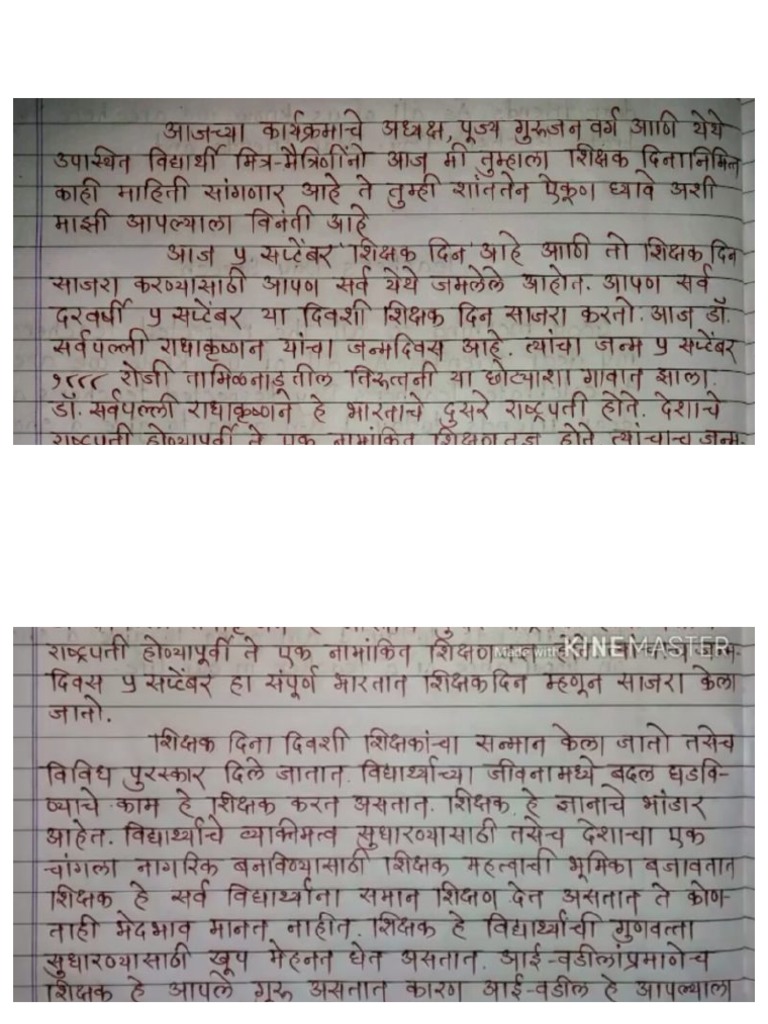 आजच्या कार्यक्रमाचे अध्यक्ष, पूज्य गुरुजन वर्ग आणि येथे
उपास्थित विद्यार्थी मित्र-मैत्रिणींनो आज मी तुम्हाला शिक्षक दिनानिमित
काही माहिती सांगणार आहे ते तुम्ही शांततेन ऐकूण घ्यावे अशी
माझी आपल्याला विनंती आहे
आज ५ सप्टेंबर 'शिक्षक दिन' आहे आणि तो शिक्षक दिन
साजरा करण्यासाठी आपण सर्व येथे जमलेले आहोत. आपण सर्व
दरवर्षी ५ सप्टेंबर या दिवशी शिक्षक दिन साजरा करतो. आज डॉ.
सर्वपल्ली राधाकृष्णन यांचा जन्मदिवस आहे. त्यांचा जन्म ५ सप्टेंबर
१८८८ रोजी तामिळनाडूतील तिरुत्तनी या छोट्याशा गावात झाला.
डॉ. सर्वपल्ली राधाकृष्णने हे भारताचे दुसरे राष्ट्रपती होते. देशाचे
राष्ट्रपती होण्यापूर्वी ते एक नामांकित शिक्षणतज्ञ होते त्यांचाच जन्म-
राष्ट्रपती होण्यापूर्वी ते एक नामांकित शिक्षण
Made with KINEMASTER
जन्म-
दिवस ५ सप्टेंबर हा संपूर्ण भारतात शिक्षक दिन म्हणून साजरा केला
जातो.
शिक्षक दिना दिवशी शिक्षकांचा सन्मान केला जातो तसेच
विविध पुरस्कार दिले जातात. विद्यार्थ्यांच्या जीवनामध्ये बदल घडवि-
ण्याचे काम हे शिक्षक करत असतात. शिक्षक हे ज्ञानाचे भांडार
आहेत. विद्यार्थ्यांचे व्याक्तिमत्व सुधारण्यासाठी तसेच देशाचा एक
चांगला नागरिक बनविण्यासाठी शिक्षक महत्वाची भूमिका बजावतात
शिक्षक हे सर्व विद्यार्थ्यांना समान शिक्षण देत असतात ते कोण-
ताही भेदभाव मानत नाहीत. शिक्षक हे विद्यार्थ्यांची गुणवत्ता
सुधारण्यासाठी खूप मेहनत घेत असतात. आई-वडीलांप्रमाणेच
शिक्षक हे आपले गुरू असतात कारण आई-वडील हे आपल्याला